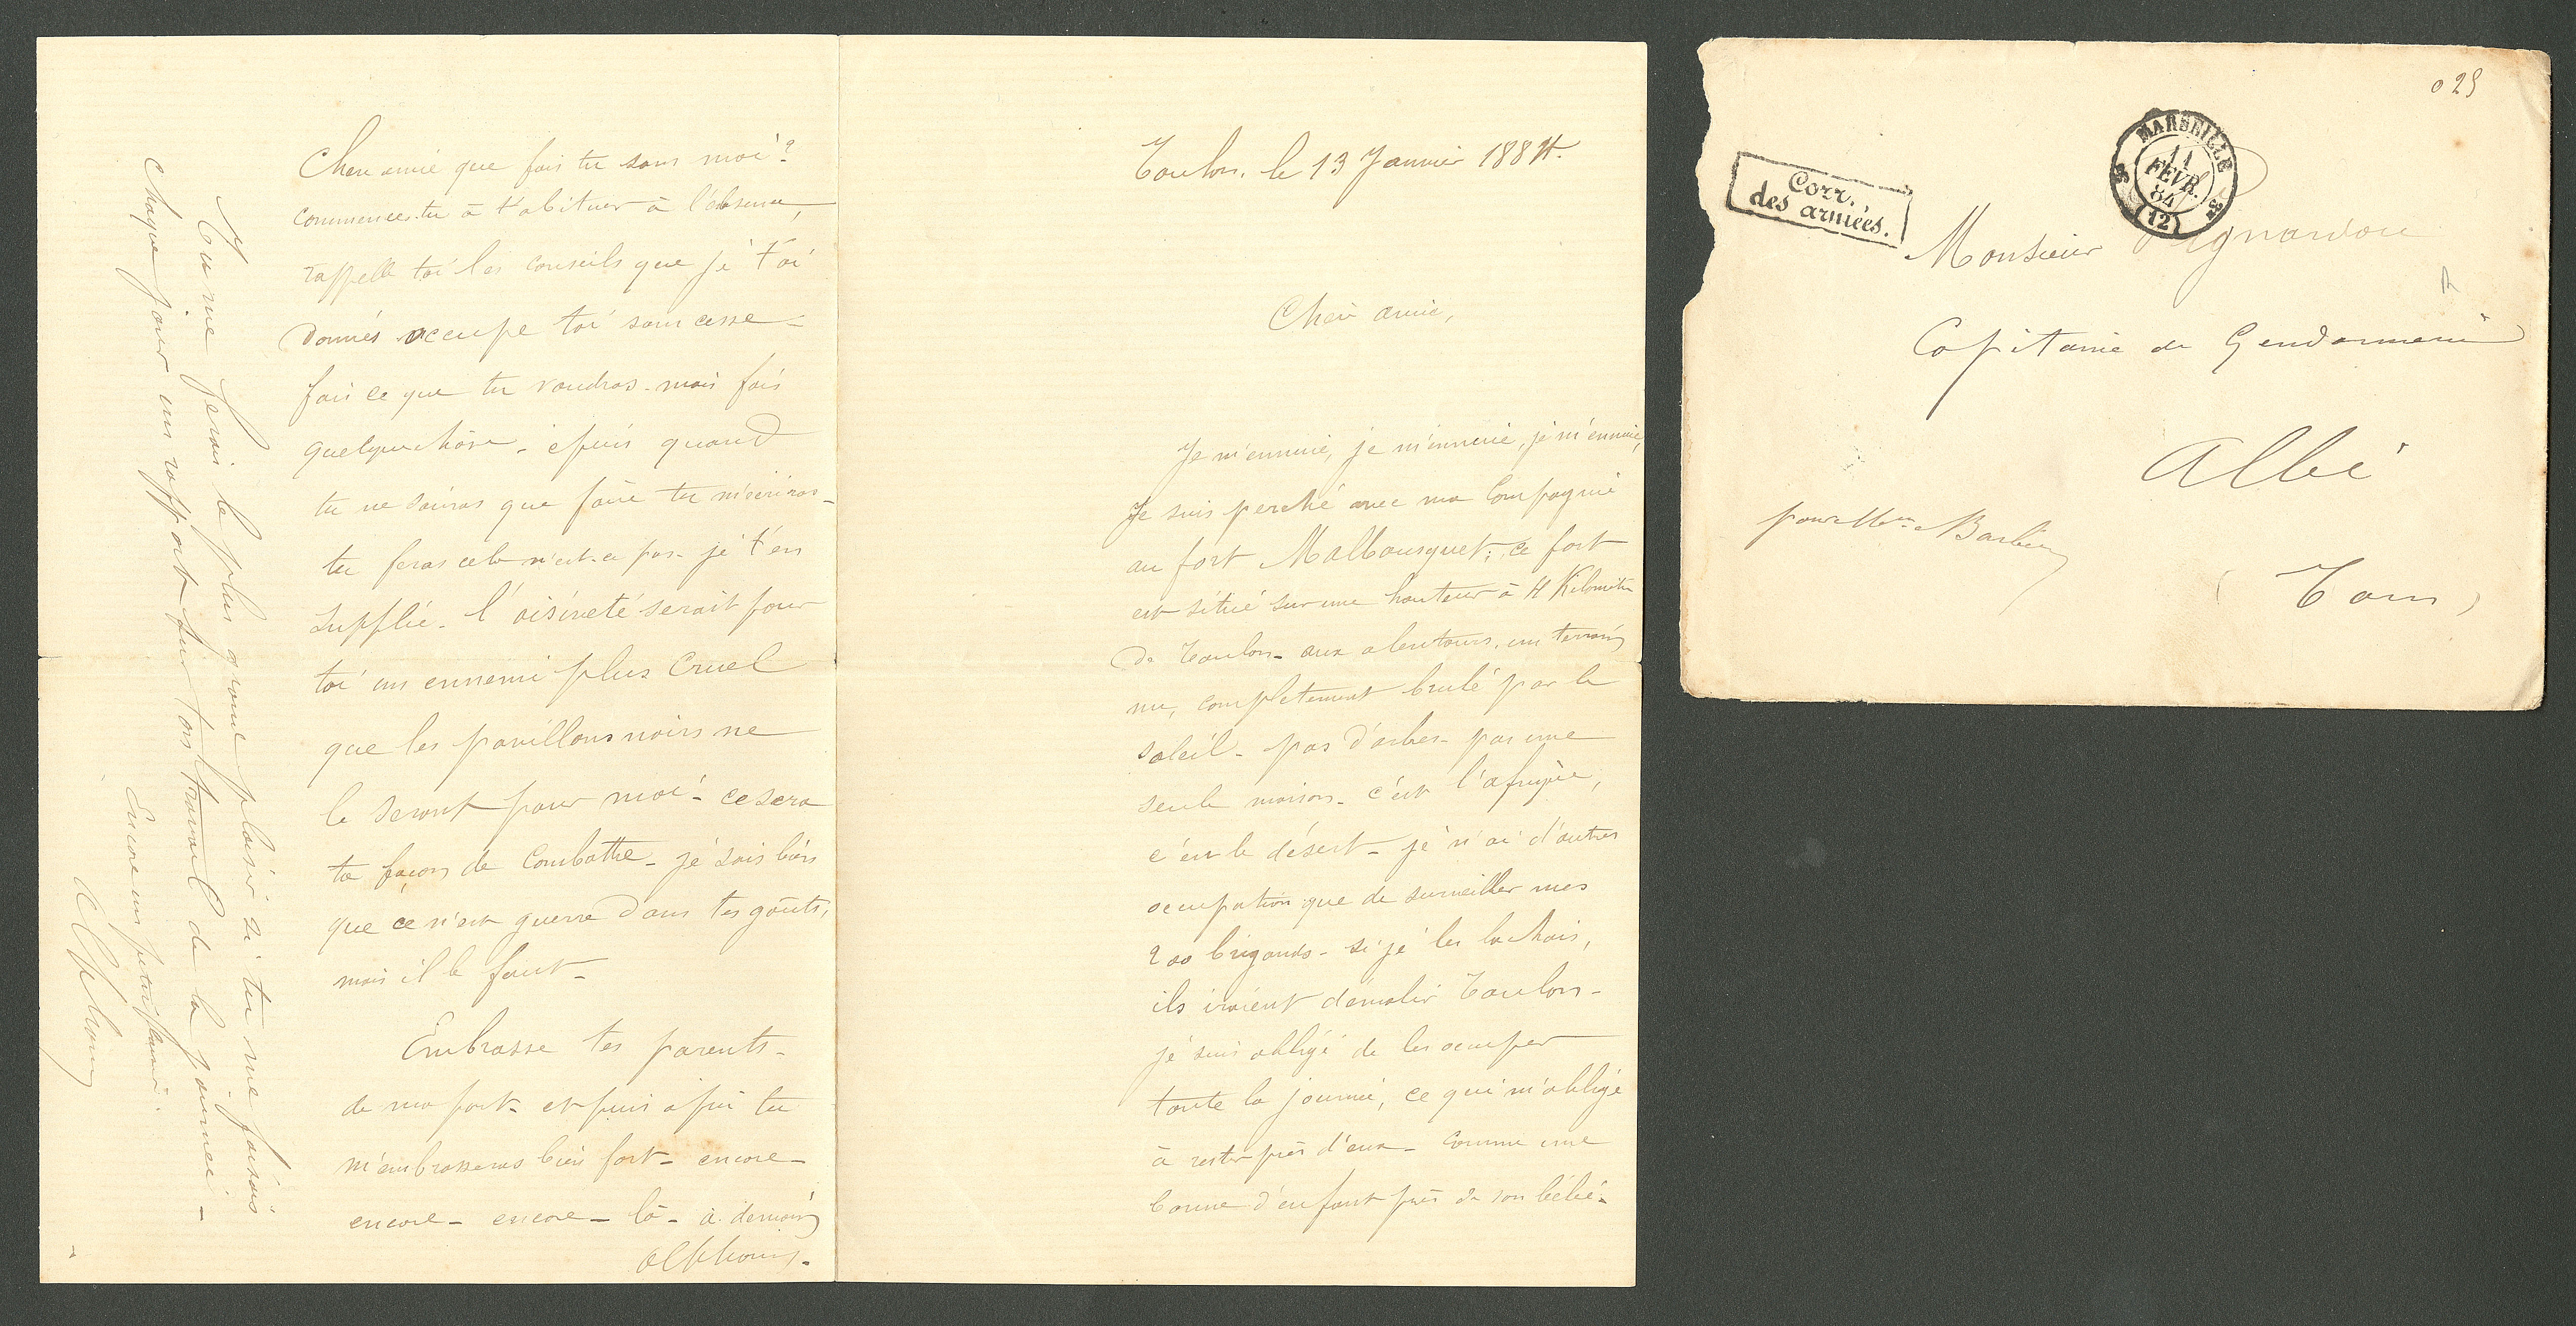 Toulon. le 13 Janvier 1884.
Cher amie,
Je m'ennuie, je m'ennuie, je m'ennuie,
Je suis perché avec ma Compagnie
au fort Malbousquet; ce fort
est situé sur une hauteur à 4 Kilomètre
de Toulon - aux alentours, un terrain
nu, completement brulé par le
soleil - pas d'arbres - pas une
seule maison - c'est l'afrique,
c'est le désert - je n'ai d'autres
occupation que de surveiller mes
200 brigands - si je les lachais,
ils iraient démolir Toulon -
je suis obligé de les occuper
toute la journée, ce qui m'oblige
à rester près d'eux - comme une
bonne d'enfant près de son bébé -
Chere amie que fais tu sans moi ?
commences tu à t'abituer à l'absence,
rappelle toi les conseils que je t'ai
donnés occupe toi sans cesse -
fais ce que tu voudras - mais fais
quelquechôse - epuis quand
tu ne sauras que faire tu m'écriras -
tu feras cela n'est-ce pas - je t'en
supplie - l'oisiveté serait pour
toi un ennemi plus cruel
que les pavillons noirs ne
le seront pour moi - ce sera
ta façon de Combattre - je sais bien
que ce n'est guerre dans tes goûts,
mais il le faut -
Embrasse tes parents -
de ma part - et puis apré tu
m'embrasseras bien fort - encore -
encore - encore - là - à demain
Alphonse -
Tu me ferais le plus grand plaisir si tu me faisais
chaque jour un rapport sur ton travail de la journée -
Encore un petit
Alphonse
025
MARSEILLE
11
FEVR.
84
(12)
Corr.
des armées.
Monsieur
Capitaine de Gendarmerie
Albi
pour Mme Barbier
(Tarn)